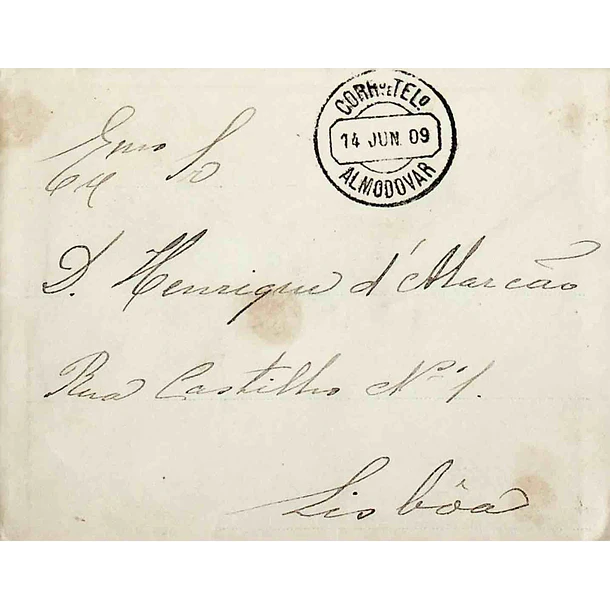 CORRº E TELº
14 JUN. 09
ALMODOVAR
Exmo Sr
D. Henrique d'Alarcão
Rua Castilho Nº 1.
Lisbôa